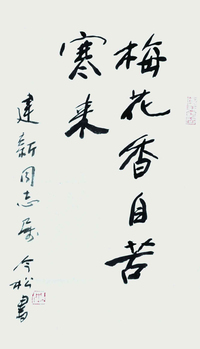 梅花香自苦
寒来
建新同志属
今松书